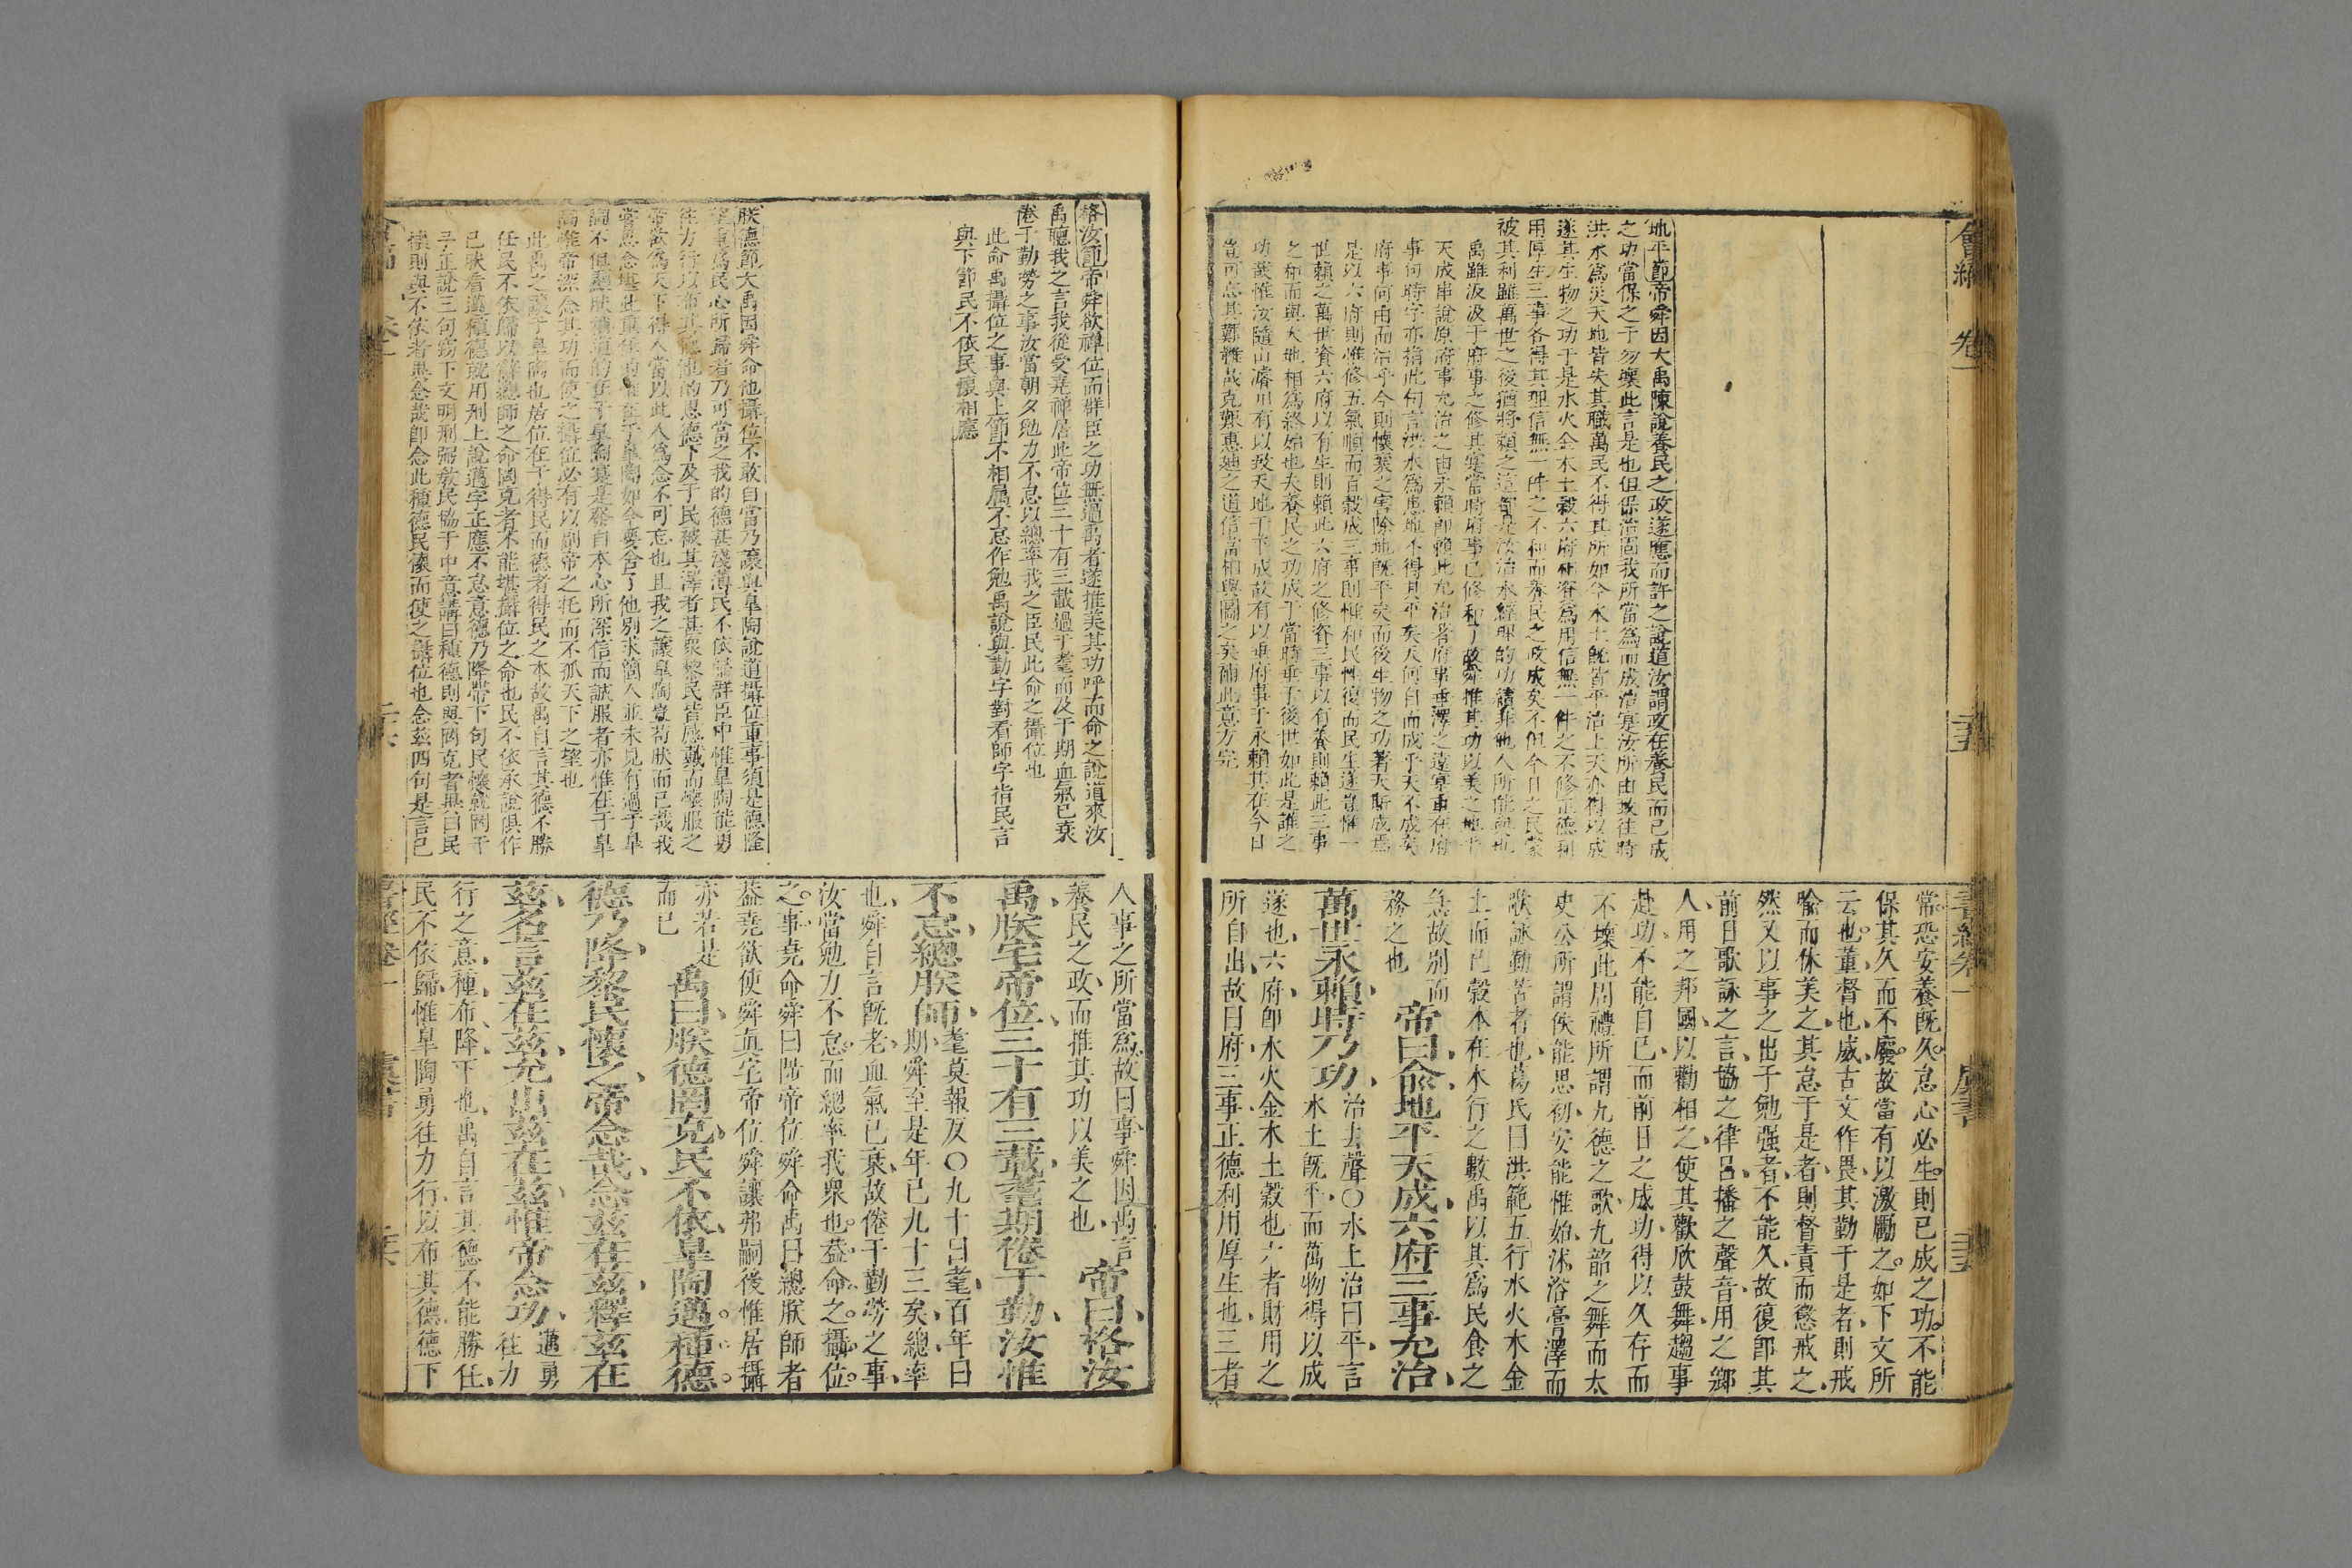 地平節帝舜因大禹陳說養民之政遂應而許之說道汝謂政在養民而已成
之功當保之于勿壞此言是也但保治固我所當爲而成治寔汝所由故往時
洪水爲災天地皆失其職萬民不得其所如今水土旣皆平治上天亦得以成
遂其生物之功于是水火金木土穀六府相資爲用信無一件之不修正德利
用厚生三事各得其理信無一件之不和而養民之政成矣不但今日之民蒙
被其利雖萬世之後猶將賴之這都是汝治水經理的功績非他人所能與也
禹雖汲汲于府事之修其寔當時府事已修和了故舜推其功以美之地平
天成串說原府事允治之由永賴卽賴此允治者府事重澤之遠寔重在府
事句時字亦指此句言洪水爲患地不得其平矣天何自而成乎天不成矣
府事何由而治乎今則懷襄之害除地旣平矣而後生物之功著天斯成焉
是以六府則惟修五氣順而百穀成三事則惟和民性復而民生遂豈惟一
世賴之萬世資六府以有生則賴此六府之修資三事以有養則賴此三事
之和而與天地相爲終始也夫養民之功成于當時垂于後世如此是誰之
功哉惟汝隨山濬川有以致天地于平成故有以垂府事于永賴其在今日
豈可忘其艱難哉克艱惠迪之道信當相與圖之矣補此意方完
常恐安養旣久怠心必生則已成之功不能
保其久而不廢故當有以激勵之如下文所
云也董督也威古文作畏其勤于是者則戒
喩而休美之其怠于是者則督責而懲戒之
然又以事之出于勉强者不能久故復卽其
前日歌詠之言協之律呂播之聲音用之鄉
人用之邦國以勸相之使其歡欣鼓舞趨事
赴功不能自已而前日之成功得以久存而
不壞此周禮所謂九德之歌九韶之舞而太
史公所謂佚能思初安能惟始沐浴膏澤而
歌詠勤苦者也葛氏曰洪範五行水火木金
土而已穀本在木行之數禹以其爲民食之
急故別而
務之也
帝曰兪地平天成六府三事允治
萬世永賴時乃功
治去聲○水土治曰平言
水土旣平而萬物得以成
遂也六府卽水火金木土穀也六者財用之
所自出故曰府三事正德利用厚生也三者
格汝節帝舜欲禪位而群臣之功無過禹者遂推美其功呼而命之說道來汝
禹聽我之言我從受堯禪居此帝位三十有三載過于耄而及于期血氣已衰
倦于勤勞之事汝當朝夕勉力不怠以總率我之臣民此命之攝位也
此命禹攝位之事與上節不相屬不怠作勉禹說與勤字對看師字指民言
與下節民不依民懷相應
朕德節大禹因舜命他攝位不敢自當乃讓與皐陶說道攝位重事須是德隆
望重爲民心所歸者乃可當之我的德甚淺薄民不依歸群臣中惟皐陶能勇
往力行以布其德他的恩德下及于民被其澤者甚衆黎民皆感戴而懷服之
帝欲爲天下得人當以此人爲念不可忘也且我之讓皐陶豈苟然而已哉我
嘗思念堪此重任的惟在于皐陶如今要舍了他別求箇人並未見有過于皐
陶不但顯然稱道的在于皐陶寔是發自本心所深信而誠服者亦惟在于皐
陶惟帝深念其功而使之攝位必有以副帝之托而不孤天下之望也
此禹之讓于皐陶也居位在于得民而德者得民之本故禹自言其德不勝
任民不依歸以辭總師之命罔克者不能堪攝位之命也民不依承說俱作
已然看邁種德旣用刑上說邁字正應不怠意德乃降帶下句民懷就罔干
予正說三句竊下文明刑弼敎民協于中意講曰種德則與罔克者異曰民
懷則與不依者異念哉卽念此種德民懷而使之攝位也念玆四句是言已
人事之所當爲故曰事舜因禹言
養民之政而推其功以美之也
帝曰格汝
禹朕宅帝位三十有三載耄期倦于勤汝惟
不怠總朕師
耄莫報反○九十曰耄百年曰
期舜至是年已九十三矣總率
也舜自言旣老血氣已衰故倦于勤勞之事
汝當勉力不怠而總率我衆也蓋命之攝位
之事堯命舜曰陟帝位舜命禹曰總朕師者
蓋堯欲使舜眞宅帝位舜讓弗嗣後惟居攝
亦若是
而已
禹曰朕德罔克民不依皐陶邁種德
德乃降黎民懷之帝念哉念玆在玆釋玆在
玆名言玆在玆允出玆在玆惟帝念功
邁勇
往力
行之意種布降下也禹自言其德不能勝任
民不依歸惟皐陶勇往力行以布其德德下